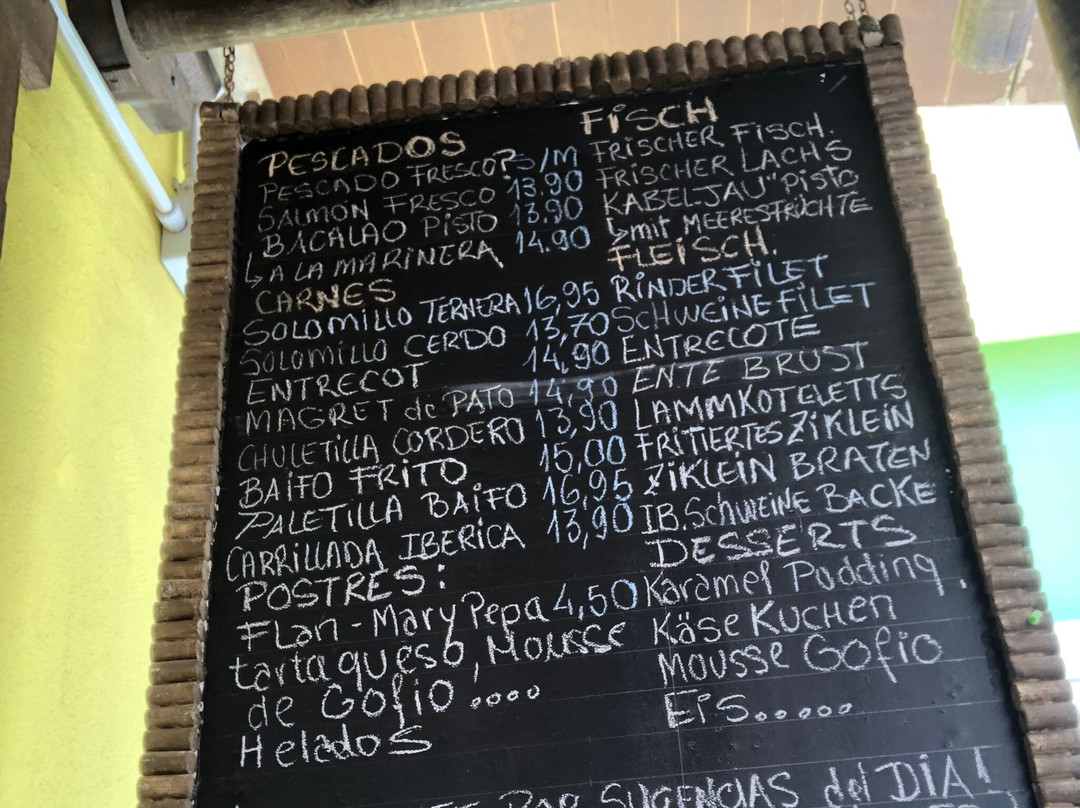 PESCADOS FISCH
PESCADO FRESCO? S/M FRISCHER FISCH.
SALMÓN FRESCO 13.90 FRISCHER LACHS
BACALAO PISTO 13.90 KABELJAU "PISTO
↳ A LA MARINERA 14.90 ↳ mit MEERESTRÜCHTE
CARNES FLEISCH.
SOLOMILLO TERNERA 16,95 RINDERFILET
SOLOMILLO CERDO 13,70 SCHWEINEFILET
ENTRECOT 14,90 ENTRECOTE
MAGRET de PATO 14,90 ENTE BRUST
CHULETILLA CORDERO 13,90 LAMMKOTELETTS
BAIFO FRITO 15,00 FRITIERTES ZIKLEIN
PALETILLA BAIFO 16,95 ZIKLEIN BRATEN
CARRILLADA IBERICA 13,90 IB.SCHWEINE BACKE
POSTRES: DESSERTS
Flan - Mary Pepa 4,50 Karamel Pudding.
tarta queso, Mousse Käse Kuchen
de Gofio .... Mousse Gofio
Helados Eis.....
POR SUGENCIAS del DIA!